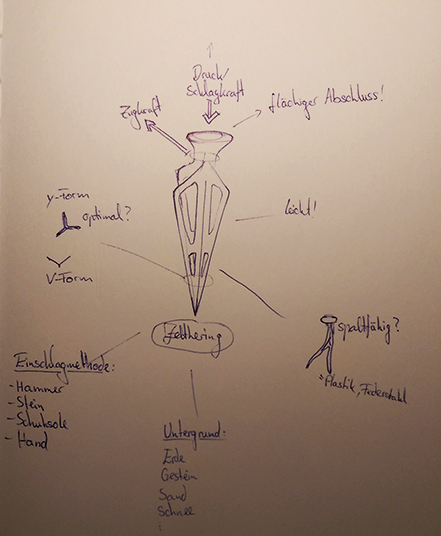 Druck/
Schlagkraft
Zugkraft
flächiger Abschluss!
y-Form
optimal?
V-Form
leicht!
spaltfähig?
Plastik, Federstahl
Zelthering
Einschlagmethode:
- Hammer
- Stein
- Schuhsole
- Hand
Untergrund:
Erde
Gestein
Sand
Schnee